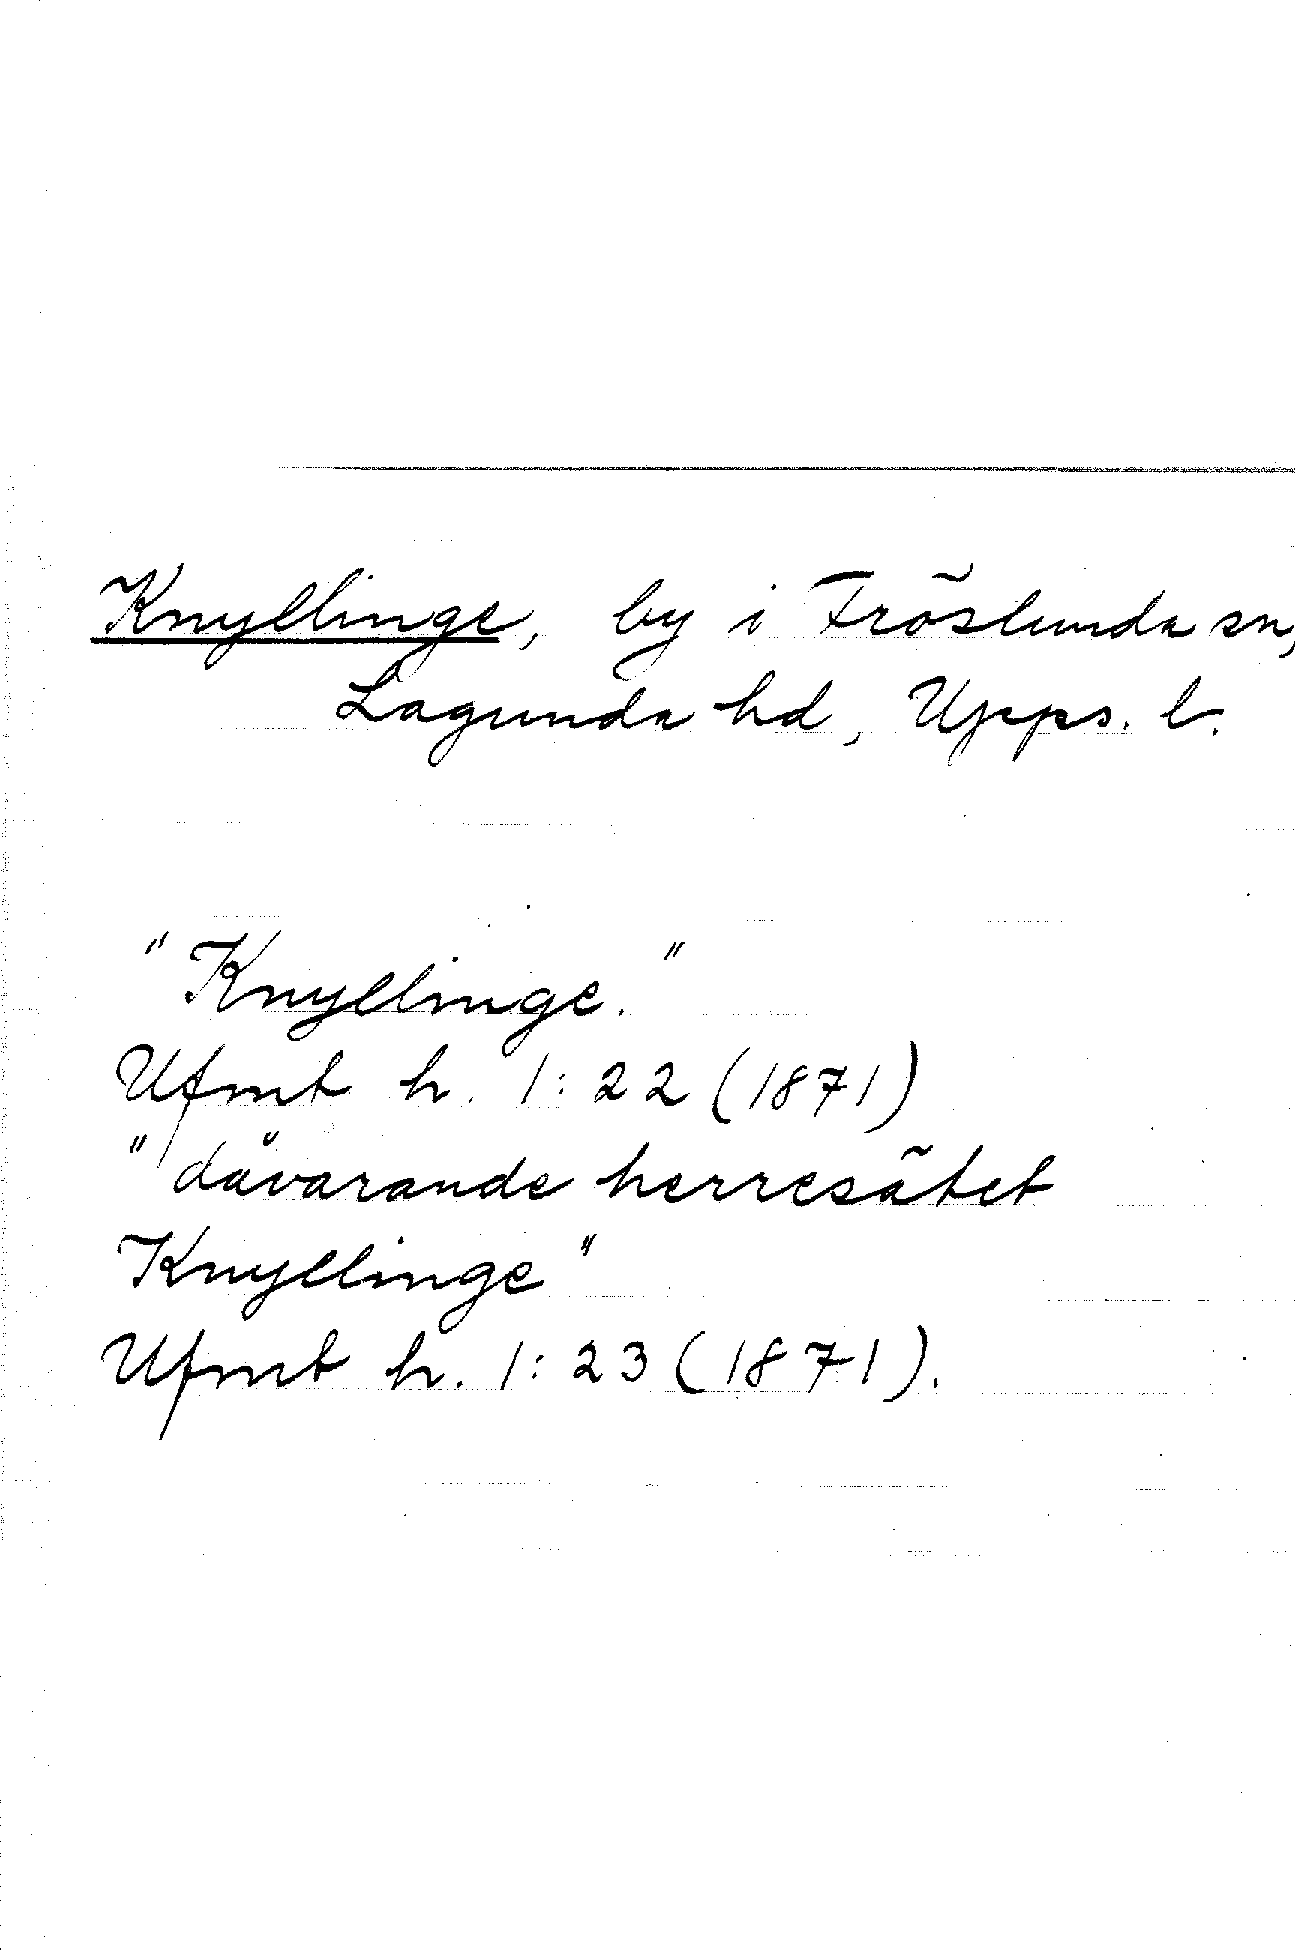 Knyllinge, by i Fröslunda sn,
Lagunda hd, Upps. l.
"Knyllinge."
Ufmt h. 1:22 (1871)
"dåvarande herresätet
Knyllinge"
Ufmt h. 1:23 (1871).